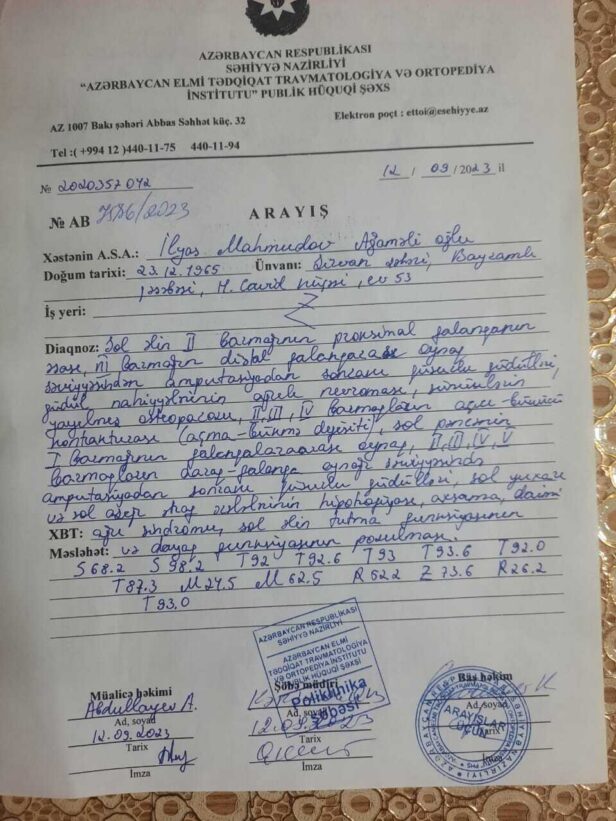 AZƏRBAYCAN RESPUBLİKASI
SƏHİYYƏ NAZİRLİYİ
“AZƏRBAYCAN ELMİ TƏDQİQAT TRAVMATOLOGİYA VƏ ORTOPEDİYA
İNSTİTUTU” PUBLİK HÜQUQİ ŞƏXS
AZ 1007 Bakı şəhəri Abbas Səhhət küç. 32
Elektron poçt : ettoi@esehiyye.az
Tel :( +994 12 )440-11-75 440-11-94
№ 2020357042
12 / 09 /2023 il
№ AB /2023
ARAYIŞ
Xəstənin A.S.A.: İlyas Mahmudov Ağaməli oğlu
Doğum tarixi: 23.12.1965 Ünvanı: Şirvan şəhəri, Bayramlı
qəsəbəsi, H. Cavid küçəsi, ev 53
İş yeri:
Diaqnoz: Sol əlin II barmağının proksimal falanqanın
əsası, III barmağın distal falanqaarası oynaq
səviyyəsindən amputasiyadan sonrakı qüsurlu güdülləri,
güdül nahiyyəsinin ağrılı nevroması, sümüklərin
yayılmış osteoporozu, II, III, IV barmaqların açıcı-bükücü
kontrakturası (açma-bükmə defisiti), sol pəncənin
I barmağının falanqalararası oynaq, II, III, IV, V
barmaqların daraq-falanqa oynağı səviyyəsində
amputasiyadan sonrakı qüsurlu güdülləri, sol yuxarı
və sol aşağı ətraf əzələlərinin hipotrofiyası, axsama, daimi
XBT: ağrı sindromu, sol əlin tutma funksiyasının
Məsləhət: və dayaq funksiyasının pozulması.
S 68.2 S 98.2 T92 T92.6 T93 T93.6 T92.0
T87.3 M24.5 M62.5 R52.2 Z73.6 R26.2
T93.0
AZƏRBAYCAN RESPUBLİKASI
SƏHİYYƏ NAZİRLİYİ
AZƏRBAYCAN ELMİ
TƏDQİQAT TRAVMATOLOGİYA
VƏ ORTOPEDİYA İNSTİTUTU
PUBLİK HÜQUQİ ŞƏXSİ
Poliklinika
şöbəsi
Müalicə həkimi
Şöbə müdiri
Baş həkim
Abdullayev A.
Ad, soyad
Ad, soyad
Ad, soyad
12.09.2023
12.09.2023
Tarix
Tarix
Tarix
İmza
İmza
İmza
ARAYIŞLAR
ÜÇÜN